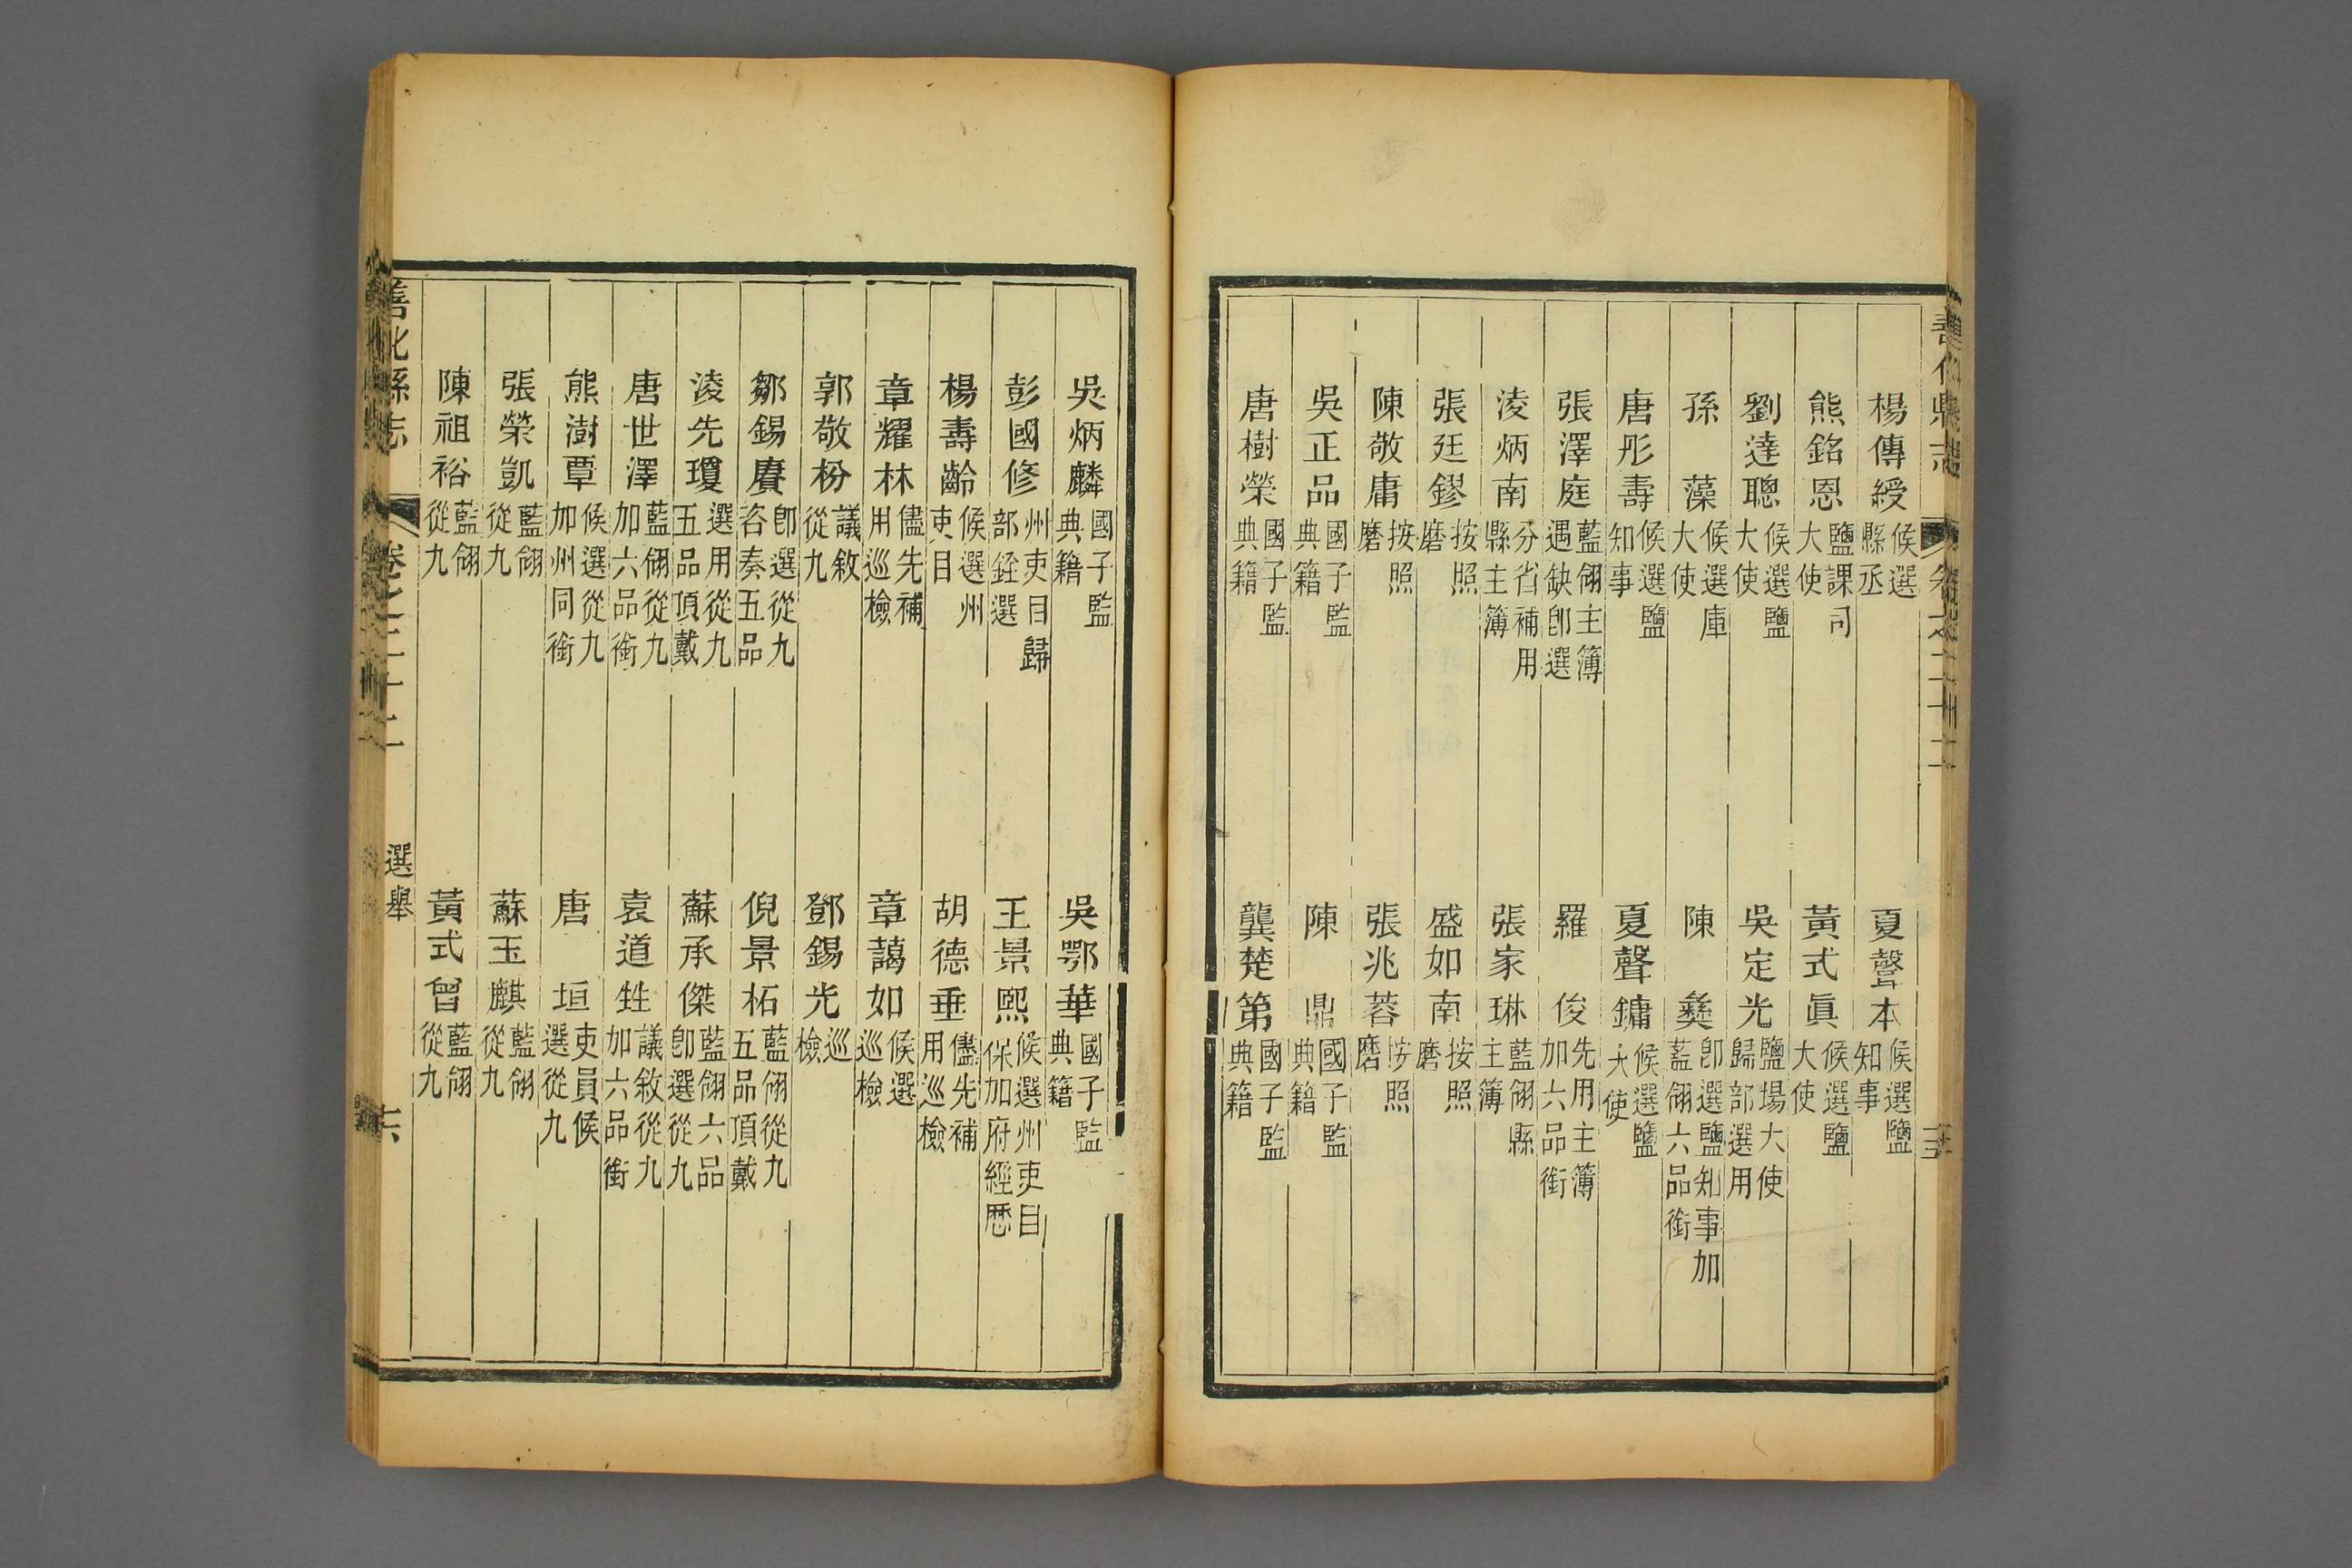 楊傳綬候選縣丞　夏聲本候選鹽知事
熊銘恩鹽課司大使　黃式眞候選鹽大使
劉達聰候選鹽大使　吳定光鹽場大使歸部選用
孫藻候選庫大使　陳彝卽選鹽知事加藍翎六品銜
唐彤壽候選鹽知事　夏聲鏞候選鹽大使
張澤庭藍翎主簿遇缺卽選　羅俊先用主簿加六品銜
淩炳南分省補用縣主簿　張家琳藍翎縣主簿
張廷鏐按照磨　盛如南按照磨
陳敬庸按照磨　張兆蓉按照磨
吳正品國子監典籍　陳鼎國子監典籍
唐樹榮國子監典籍　龔楚第國子監典籍
吳炳麟國子監典籍　吳鄂華國子監典籍
彭國修州吏目歸部銓選　王景熙候選州吏目保加府經歷
楊壽齡候選州吏目　胡德垂儘先補用巡檢
章耀林儘先補用巡檢　章藹如候選巡檢
郭敬枌議敘從九　鄧錫光巡檢
鄒錫賡卽選從九咨奏五品　倪景柘藍翎從九五品頂戴
淩先瓊選用從九五品頂戴　蘇承傑藍翎六品卽選從九
唐世澤藍翎從九加六品銜　袁道甡議敘從九加六品銜
熊澍覃候選從九加州同銜　唐垣吏員候選從九
張榮凱藍翎從九　蘇玉麒藍翎從九
陳祖裕藍翎從九　黃式曾藍翎從九
善化縣志　卷之二十二　選舉